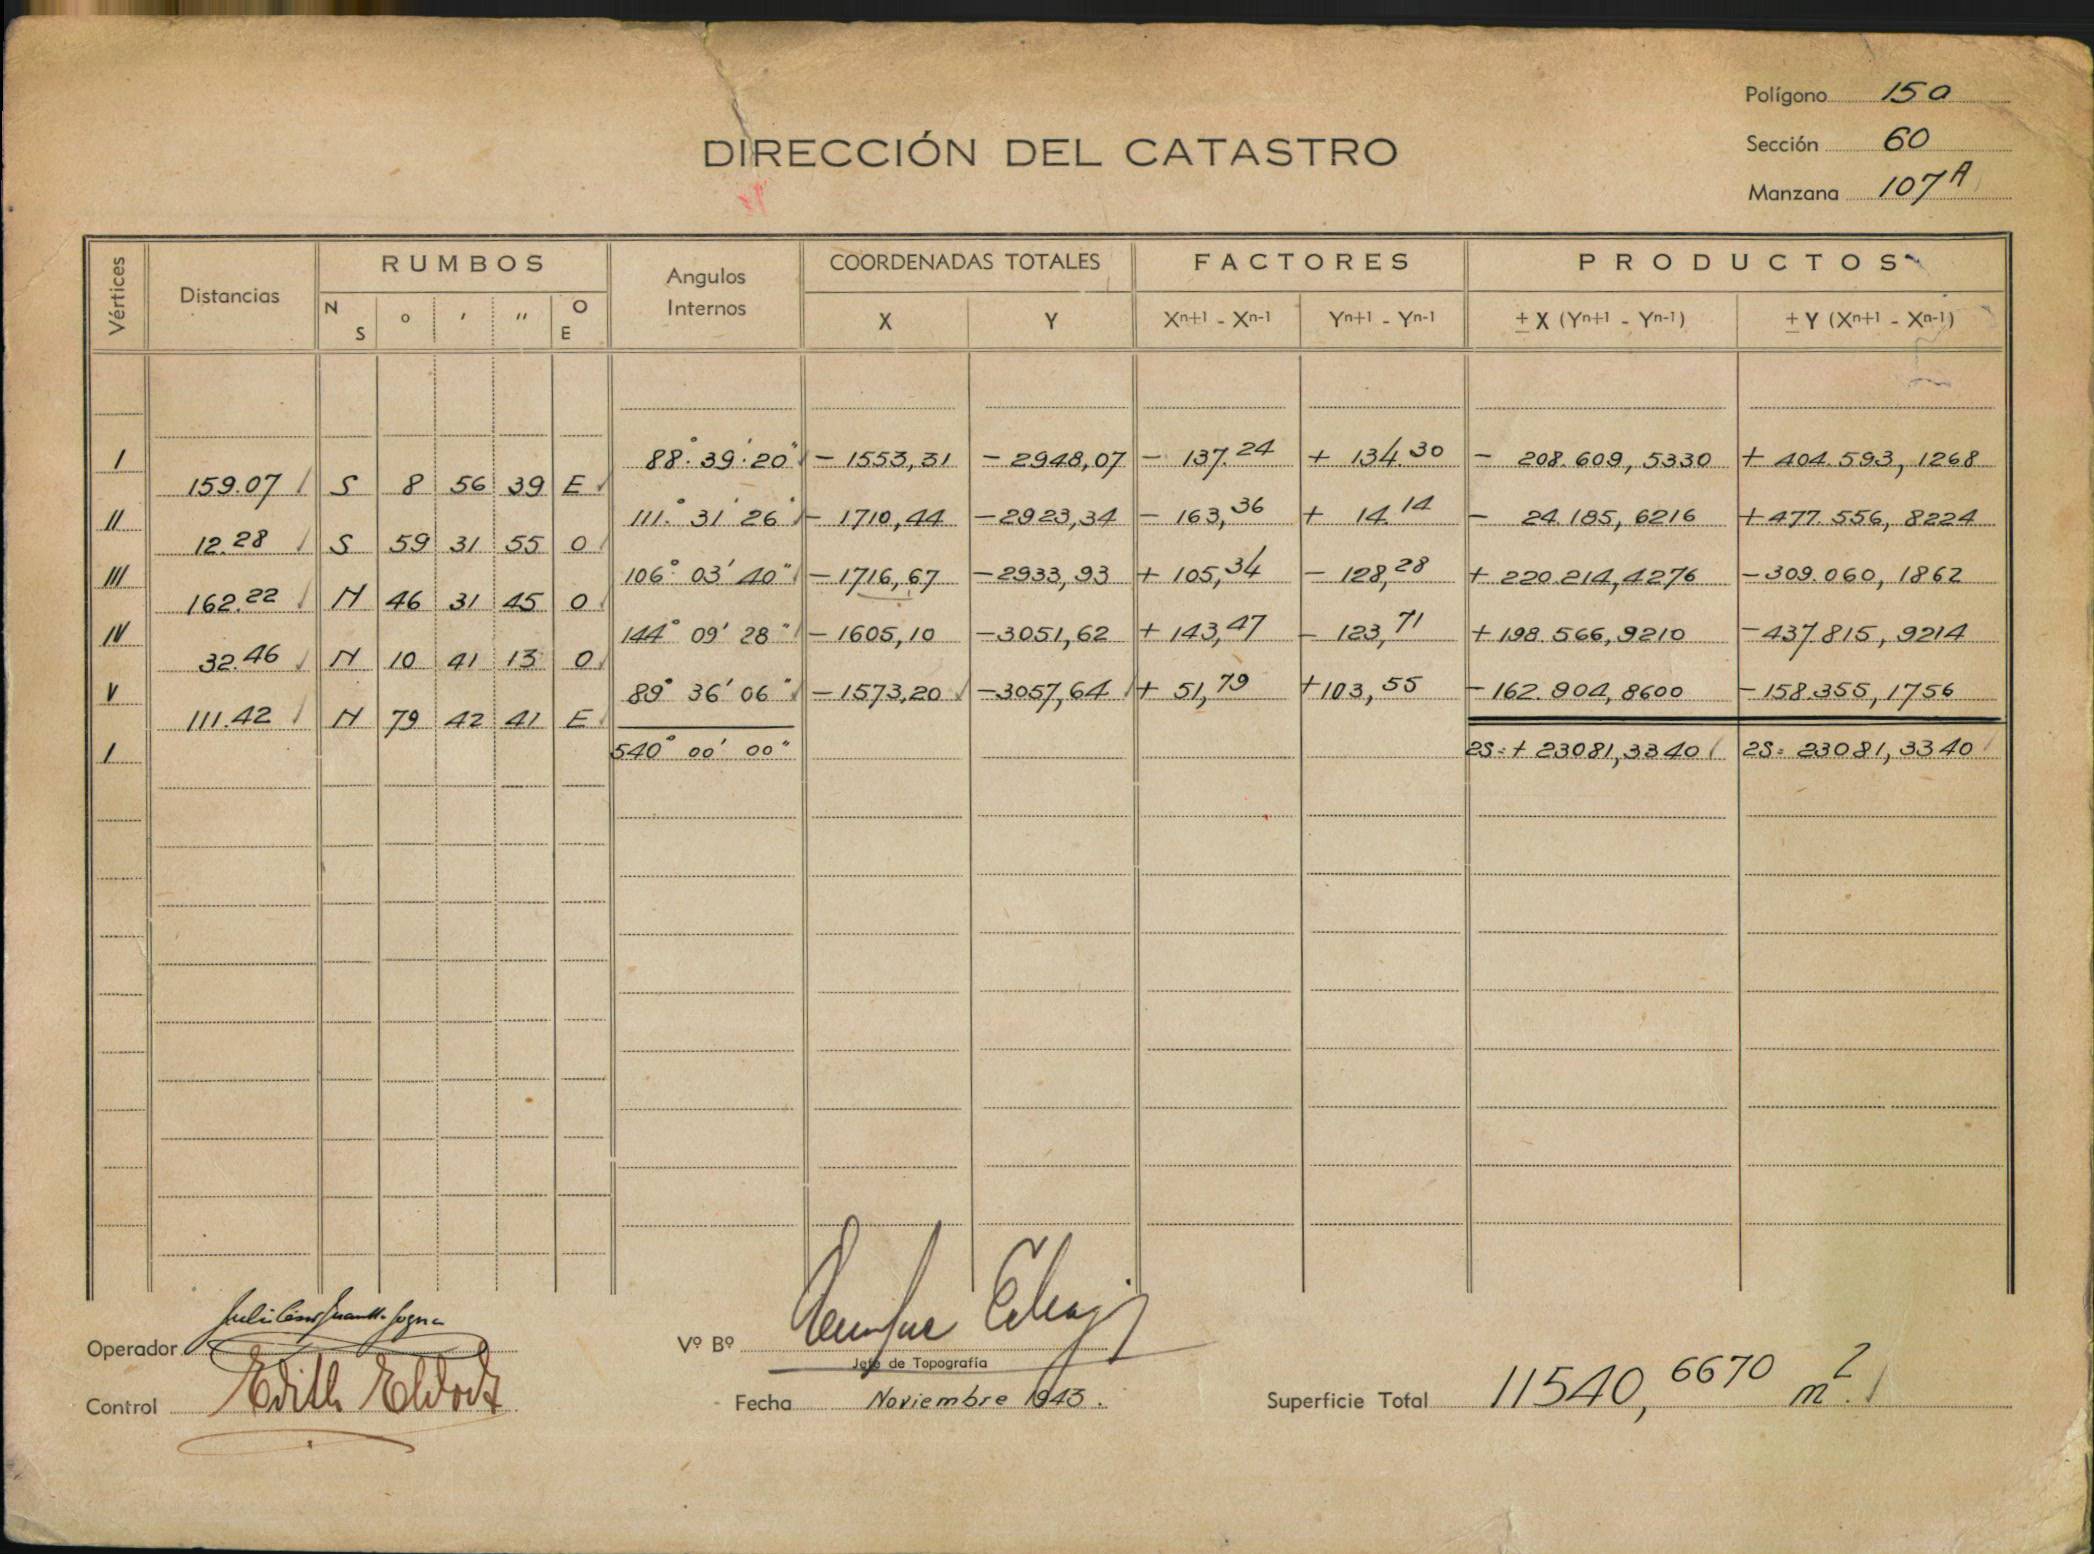 Polígono 150
Sección 60
Manzana 107 A
DIRECCIÓN DEL CATASTRO
Vértices Distancias RUMBOS Angulos Internos COORDENADAS TOTALES FACTORES PRODUCTOS
N S ° ′ ″ O E X Y Xn+1 - Xn-1 Yn+1 - Yn-1 ± X (Yn+1 - Yn-1) ± Y (Xn+1 - Xn-1)
I 88° 39′ 20″ - 1553,31 - 2948,07 - 137.24 + 134.30 - 208.609,5330 + 404.593,1268
159.07 S 8 56 39 E
II 111° 31′ 26″ - 1710,44 - 2923,34 - 163,36 + 14.14 - 24.185,6216 + 477.556,8224
12.28 S 59 31 55 O
III 106° 03′ 40″ - 1716,67 - 2933,93 + 105,34 - 128,28 + 220.214,4276 - 309.060,1862
162.22 N 46 31 45 O
IV 144° 09′ 28″ - 1605,10 - 3051,62 + 143,47 - 123,71 + 198.566,9210 - 437.815,9214
32.46 N 10 41 13 O
V 89° 36′ 06″ - 1573,20 - 3057,64 + 51,79 + 103,55 - 162.904,8600 - 158.355,1756
111.42 N 79 42 41 E
I 540° 00′ 00″ 2S = + 23081,3340 2S = 23081,3340
Operador
Vº Bº
Jefe de Topografía
Control Edith
Fecha Noviembre 1943.
Superficie Total 11540,6670 m2.